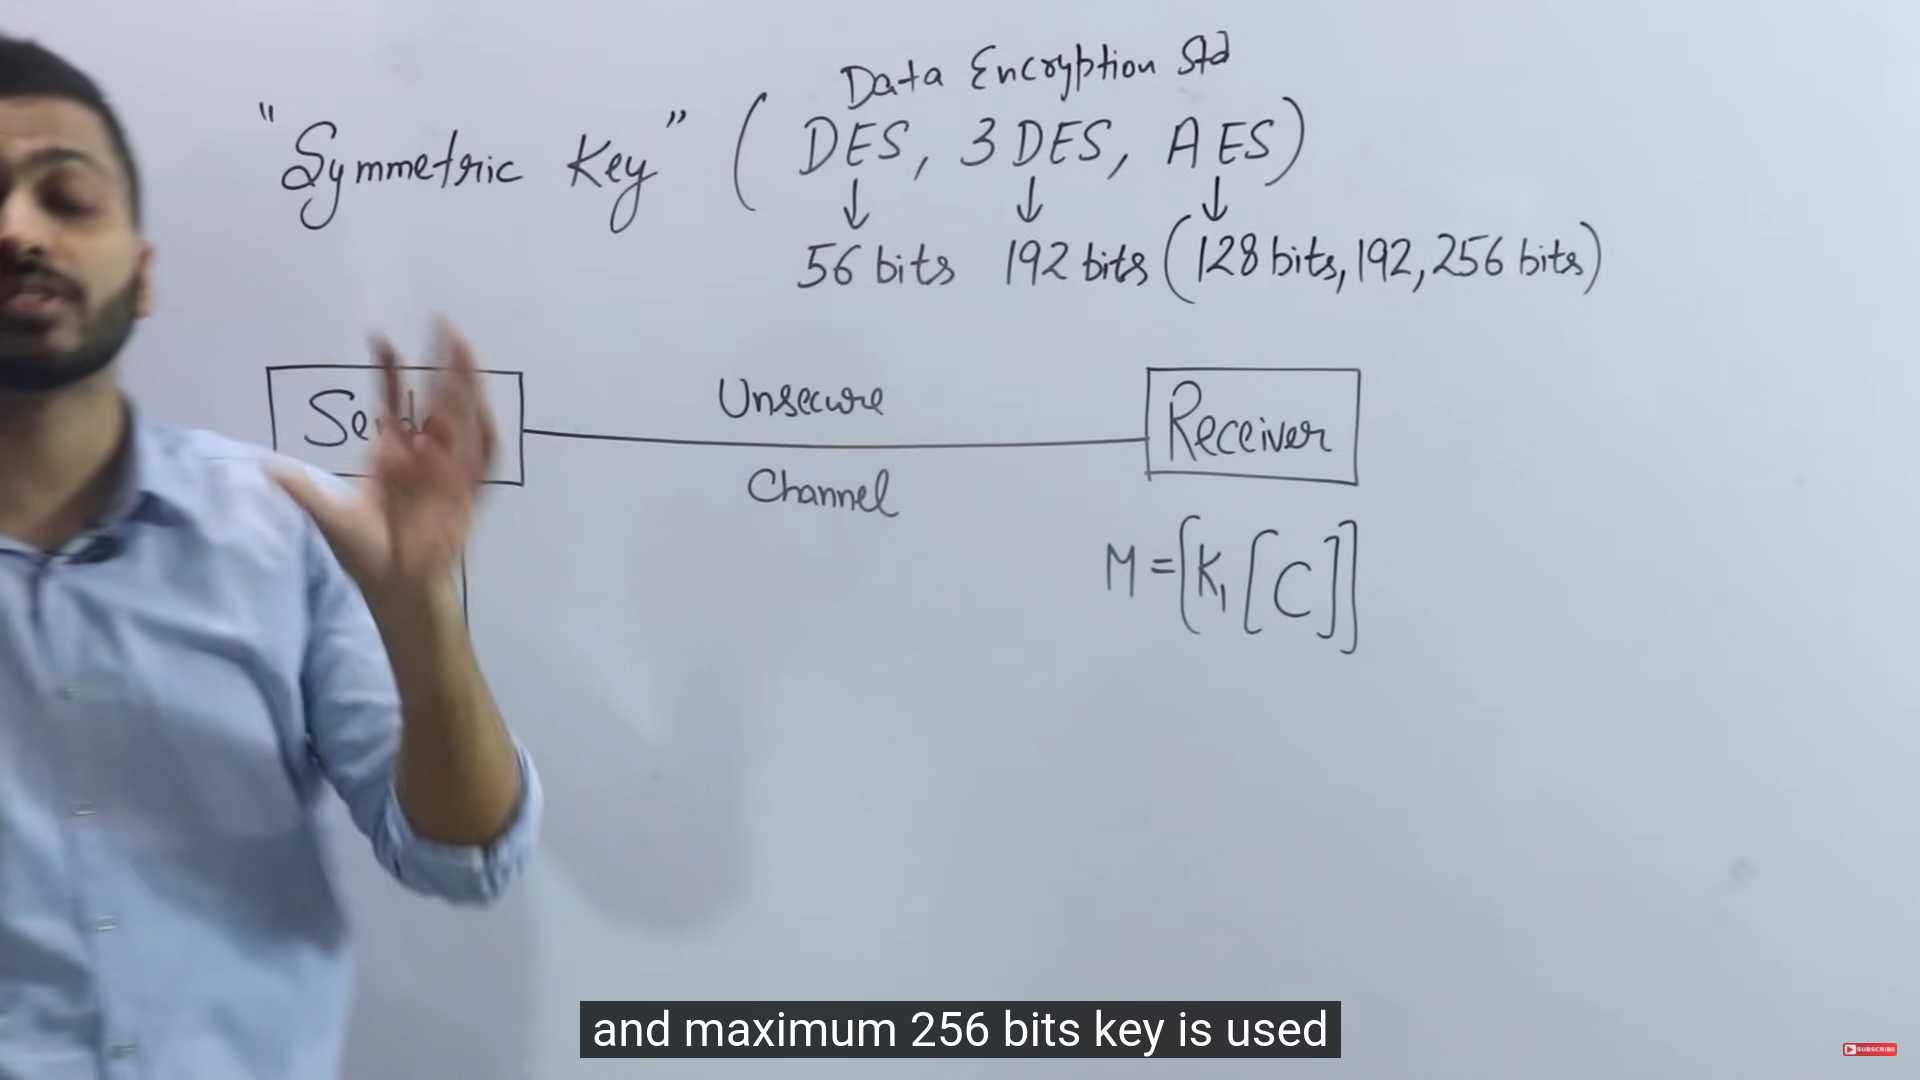 Data Encryption Std
"Symmetric Key" ( DES, 3DES, AES)
↓ ↓ ↓
56 bits 192 bits (128 bits, 192, 256 bits)
Unsecure
Receiver
Channel
M = [K₁ [C]]
and maximum 256 bits key is used
SUBSCRIBE